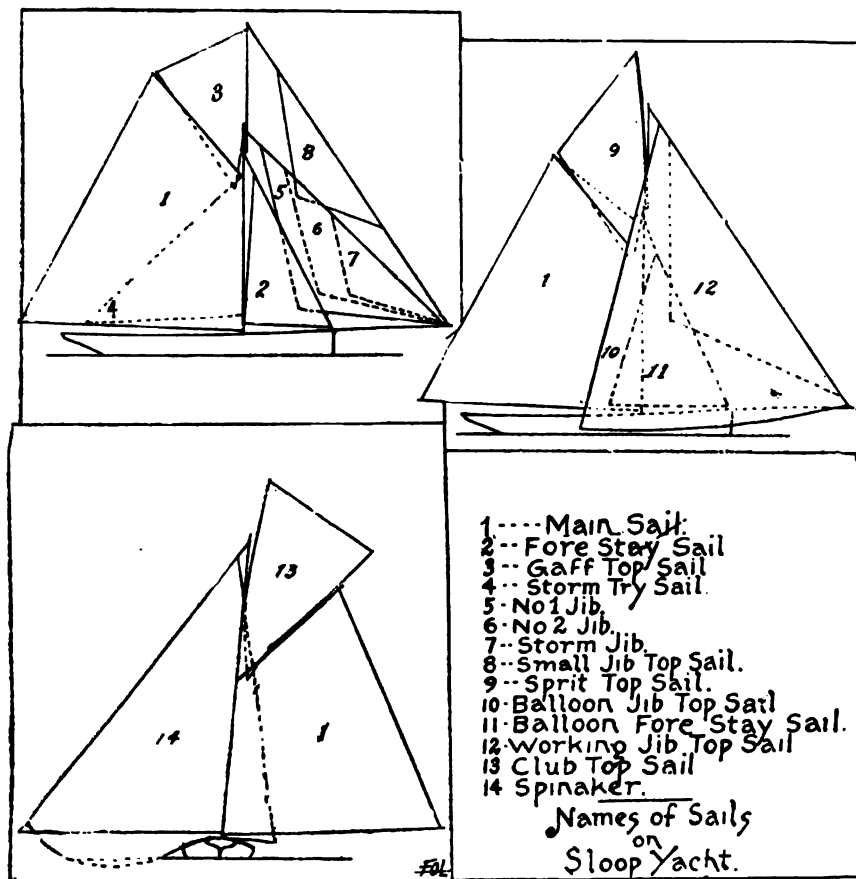 3
8
1
5
6
7
4
2
9
1
12
10
11
13
14
1
1 ---- Main Sail.
2 -- Fore Stay Sail
3 -- Gaff Top Sail
4 -- Storm Try Sail.
5 - No 1 Jib.
6 - No 2 Jib.
7 -- Storm Jib.
8 -- Small Jib Top Sail.
9 -- Sprit Top Sail.
10 - Balloon Jib Top Sail
11 - Balloon Fore Stay Sail.
12 - Working Jib Top Sail
13 Club Top Sail
14 Spinaker.
Names of Sails
on
Sloop Yacht.